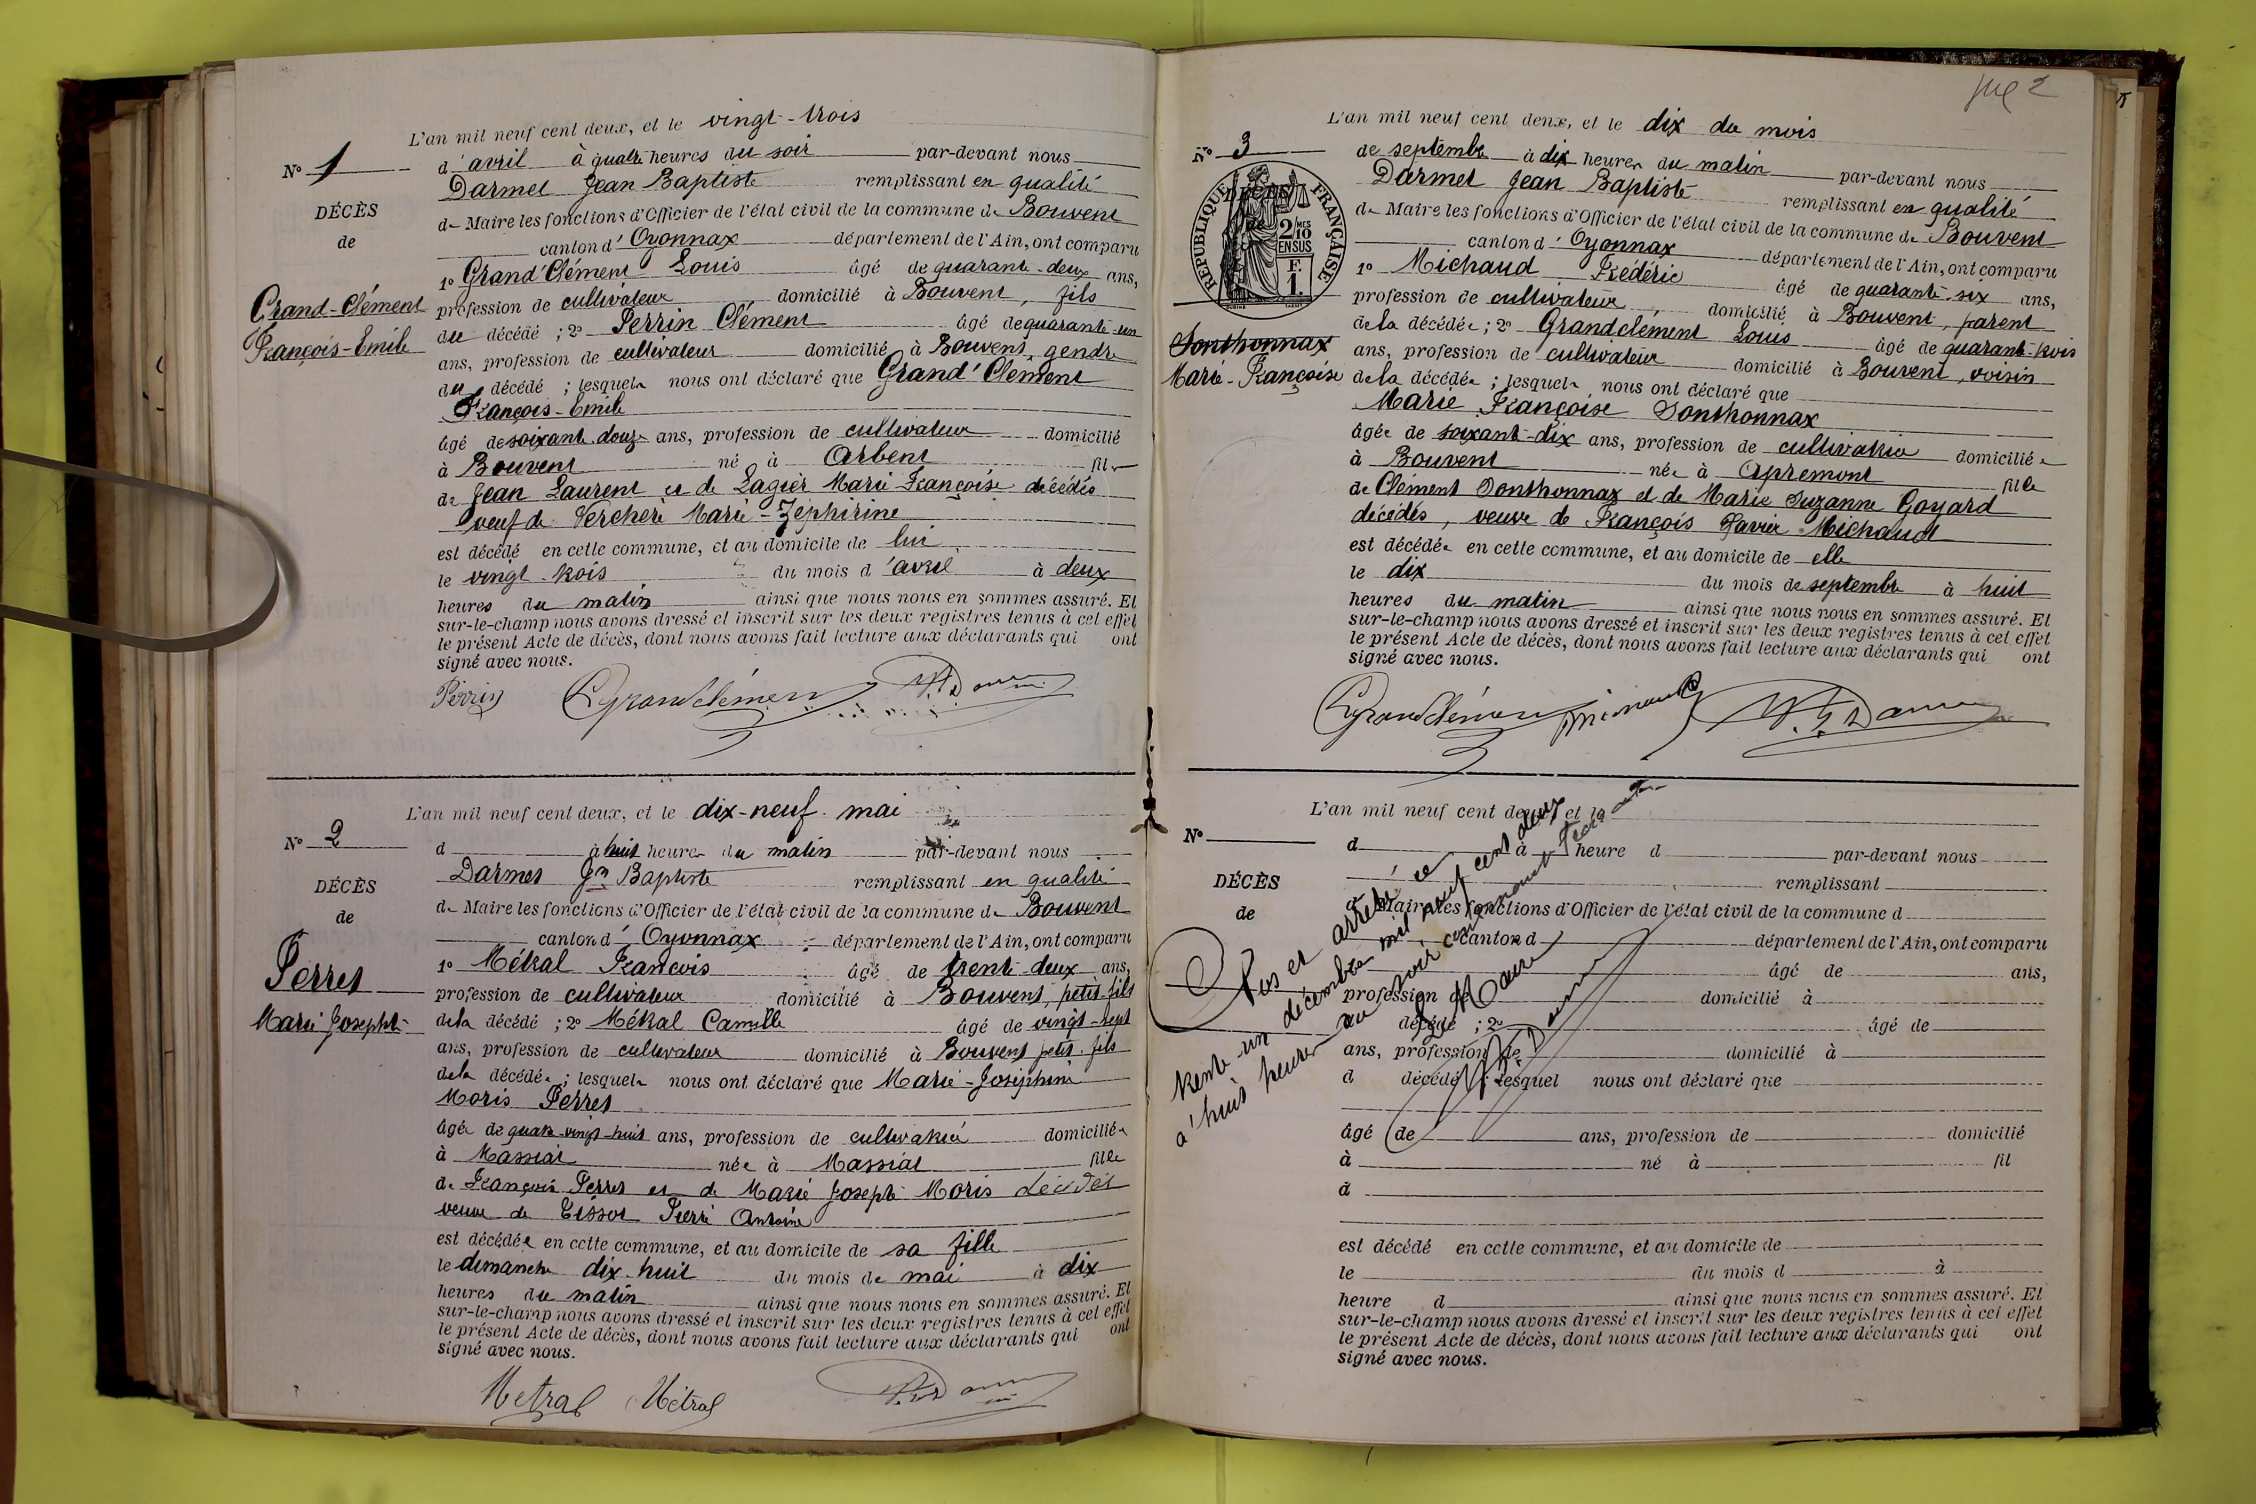 L'an mil neuf cent deux, et le vingt-trois
d'avril à quatre heures du soir par-devant nous
N° 1
Darmet Jean Baptiste remplissant en qualité
DÉCÈS
de Maire les fonctions d'Officier de l'état civil de la commune de Bouvent
de
canton d'Oyonnax département de l'Ain, ont comparu
1° Grand'Clément Louis âgé de quarante-deux ans,
Grand-Clément
François-Emile
profession de cultivateur domicilié à Bouvent, fils
du décédé ; 2° Perrin Clément âgé de quarante-un
ans, profession de cultivateur domicilié à Bouvent, gendre
du décédé ; lesquels nous ont déclaré que Grand'Clément
François-Emile
âgé de soixante douze ans, profession de cultivateur domicilié
à Bouvent né à Arbent fils
de Jean Laurent et de Lagier Marie Françoise décédés
veuf de Verchère Marie-Zéphirine
est décédé en cette commune, et au domicile de lui
le vingt-trois du mois d'avril à deux
heures du matin ainsi que nous nous en sommes assuré. Et
sur-le-champ nous avons dressé et inscrit sur les deux registres tenus à cet effet
le présent Acte de décès, dont nous avons fait lecture aux déclarants qui ont
signé avec nous.
Perrin Grandclément
L'an mil neuf cent deux, et le dix-neuf mai
N° 2
d à huit heures du matin par-devant nous
Darmet Jn Baptiste remplissant en qualité
DÉCÈS
de Maire les fonctions d'Officier de l'état civil de la commune de Bouvent
de
canton d'Oyonnax département de l'Ain, ont comparu
Perret
Marie Josephte
1° Métral François âgé de trente deux ans,
profession de cultivateur domicilié à Bouvent, petit-fils
de la décédé ; 2° Métral Camille âgé de vingt-sept
ans, profession de cultivateur domicilié à Bouvent petit-fils
de la décédée ; lesquels nous ont déclaré que Marie-Joséphine
Moris Perret
âgée de quatre-vingt-huit ans, profession de cultivatrice domiciliée
à Massiat née à Massiat fille
de François Perret et de Marie Josephte Moris décédés
veuve de Tissot Pierre Antoine
est décédée en cette commune, et au domicile de sa fille
le dimanche dix-huit du mois de mai à dix
heures du matin ainsi que nous nous en sommes assuré. Et
sur-le-champ nous avons dressé et inscrit sur les deux registres tenus à cet effet
le présent Acte de décès, dont nous avons fait lecture aux déclarants qui ont
signé avec nous.
Metral Métral
2
L'an mil neuf cent deux, et le dix du mois
N° 3
de septembre à dix heures du matin par-devant nous
Darmet Jean Baptiste remplissant en qualité
RÉPUBLIQUE FRANÇAISE
2/10 MES
EN SUS
F.
1.
de Maire les fonctions d'Officier de l'état civil de la commune de Bouvent
canton d'Oyonnax département de l'Ain, ont comparu
1° Michaud Frédéric âgé de quarante-six ans,
profession de cultivateur domicilié à Bouvent, parent
Sonthonnax
Marie-Françoise
de la décédée ; 2° Grandclément Louis âgé de quarante-trois
ans, profession de cultivateur domicilié à Bouvent, voisin
de la décédée ; lesquels nous ont déclaré que
Marie Françoise Sonthonnax
âgée de soixante-dix ans, profession de cultivatrice domiciliée
à Bouvent née à Apremont fille
de Clément Sonthonnax et de Marie Suzanne Goyard
décédés, veuve de François Xavier Michaud
est décédée en cette commune, et au domicile de elle
le dix du mois de septembre à huit
heures du matin ainsi que nous nous en sommes assuré. Et
sur-le-champ nous avons dressé et inscrit sur les deux registres tenus à cet effet
le présent Acte de décès, dont nous avons fait lecture aux déclarants qui ont
signé avec nous.
Grandclément Michaud
L'an mil neuf cent deux, et le
N°
d à heure d par-devant nous
remplissant
DÉCÈS
d Maire les fonctions d'Officier de l'état civil de la commune d
de
canton d département de l'Ain, ont comparu
âgé de ans,
profession de domicilié à
décédé ; 2° âgé de
ans, profession de domicilié à
d décédé ; lesquel nous ont déclaré que
âgé de ans, profession de domicilié
à né à fil
d
est décédé en cette commune, et au domicile de
le du mois d à
heure d ainsi que nous nous en sommes assuré. Et
sur-le-champ nous avons dressé et inscrit sur les deux registres tenus à cet effet
le présent Acte de décès, dont nous avons fait lecture aux déclarants qui ont
signé avec nous.
Clos et arrêté ce
trente-un décembre mil neuf cent deux
à huit heures du soir contenant trois
Le Maire